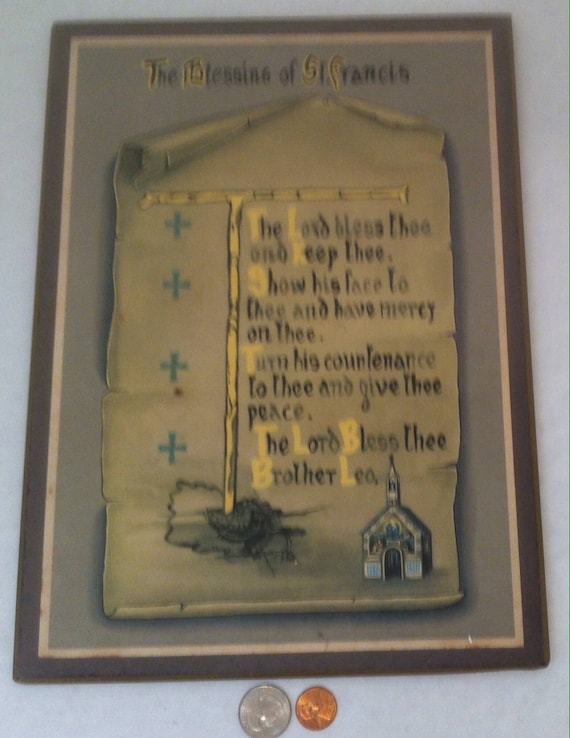 The Blessing of St. Francis
The Lord bless thee
and keep thee.
Show his face to
thee and have mercy
on thee.
Turn his countenance
to thee and give thee
peace.
The Lord Bless thee
Brother Leo.